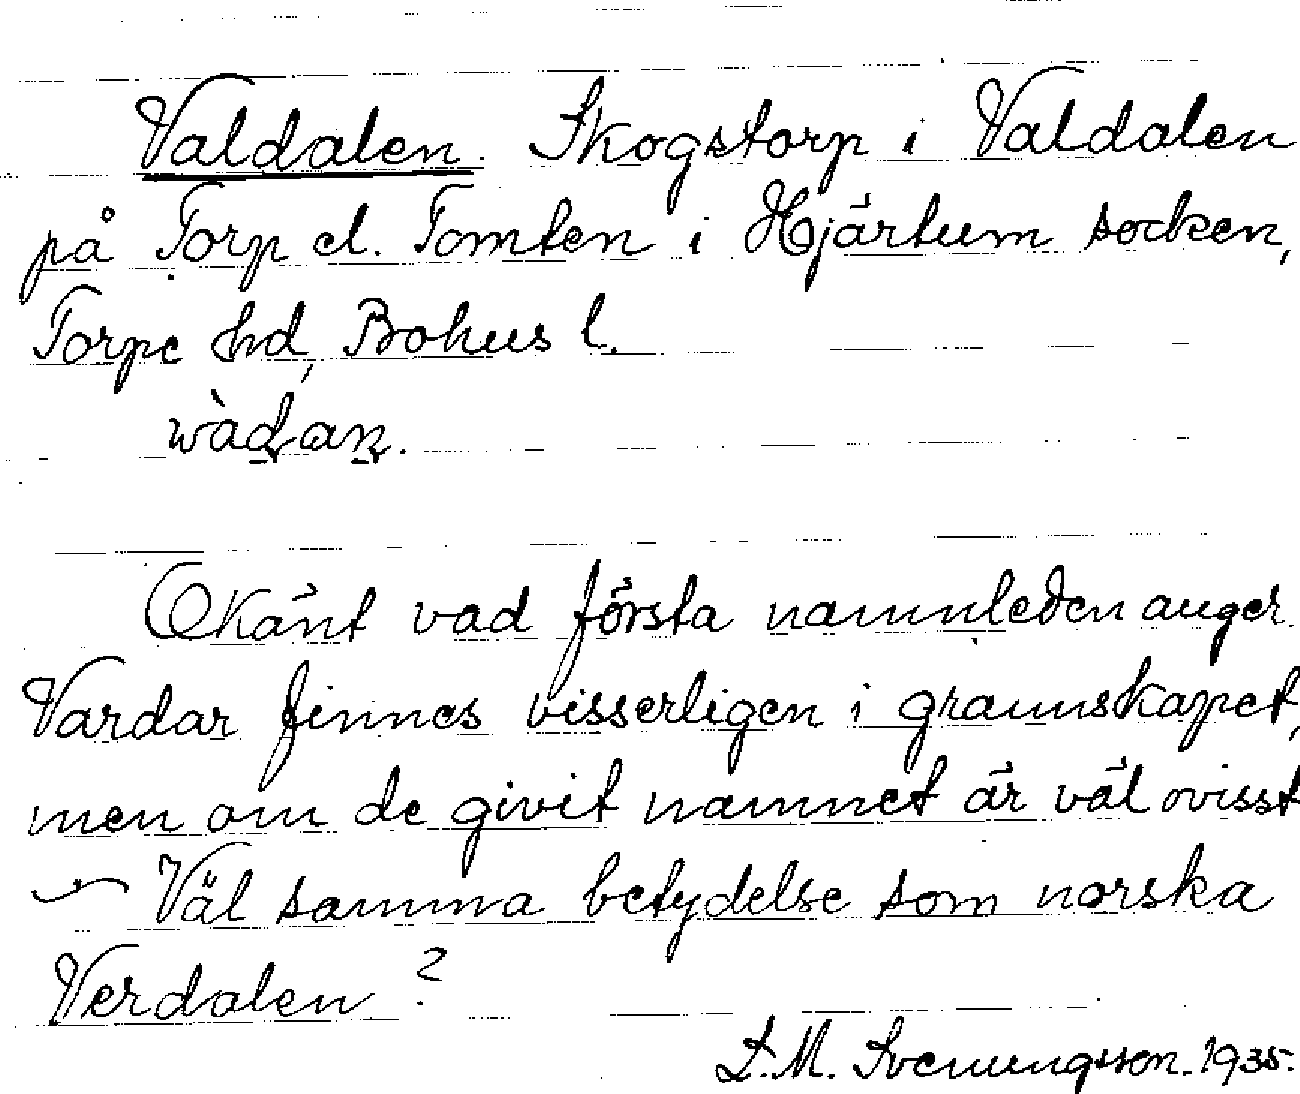 Valdalen. Skogstorp i Valdalen
på Torp el. Tomten i Hjärtum socken,
Torpe hd, Bohus l.
wàdan.
Okänt vad första namnleden anger.
Vardar finnes visserligen i grannskapet,
men om de givit namnet är väl ovisst
– Väl samma betydelse som norska
Verdalen?
S.M. Svenungsson. 1935.